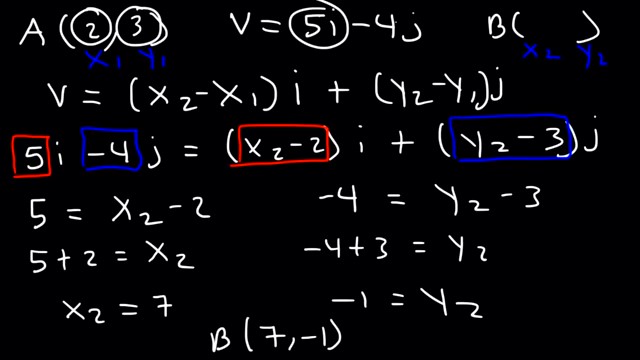 A (2) (3) V = 5i - 4j B ( )
X₁ Y₁ X₂ Y₂
V = (X₂ - X₁) i + (Y₂ - Y₁) j
5 i - 4 j = (X₂ - 2) i + (Y₂ - 3) j
5 = X₂ - 2 -4 = Y₂ - 3
5 + 2 = X₂ -4 + 3 = Y₂
X₂ = 7 -1 = Y₂
B (7, -1)